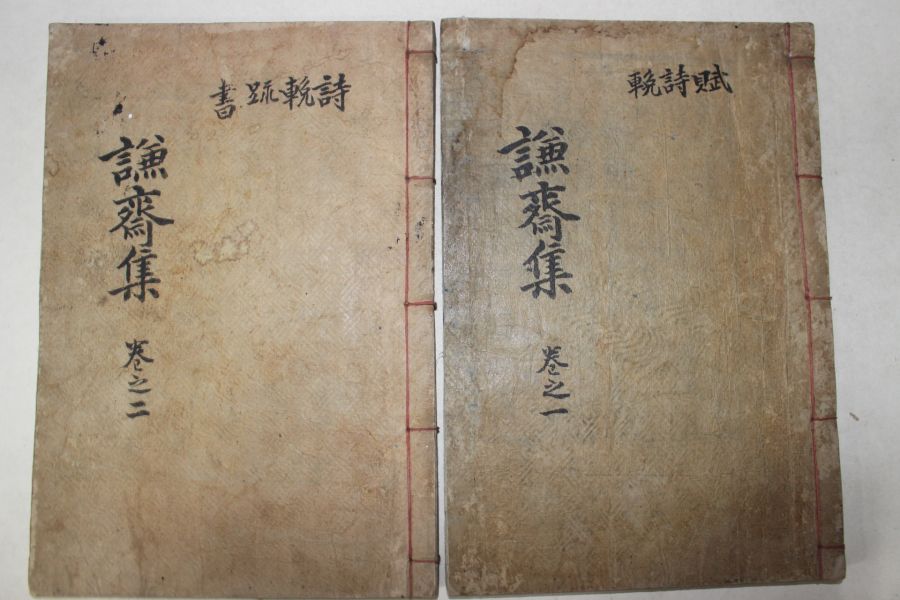 賦詩輓
謙齋集
卷之一
詩輓䟽書
謙齋集
卷之二